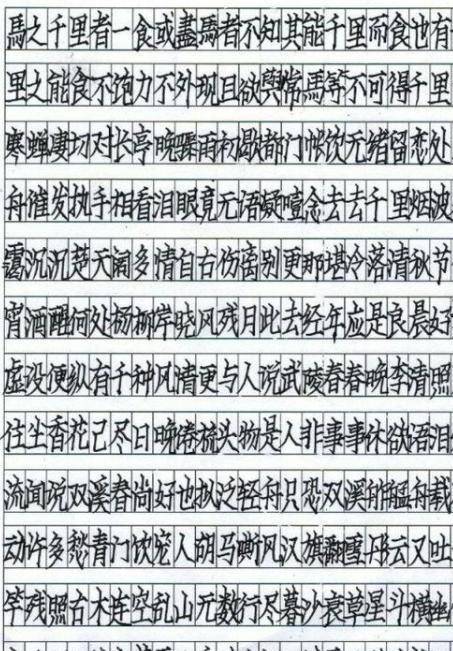 馬之千里者一食或盡馬者不知其能千里而食也有
里之能食不饱力不外现且欲與常馬等不可得千里
寒蝉凄切对长亭晚骤雨初歇都门怅饮无绪留恋处
舟催发执手相看泪眼竟无语凝噎念去去千里烟波
霭沉沉楚天阔多情自古伤离别更那堪冷落清秋节
宵酒醒何处杨柳岸晓风残月此去经年应是良晨好
虚设便纵有千种风情更与人说武陵春春晚李清照
住尘香花已尽日晚倦梳头物是人非事事休欲语泪
流闻说双溪春尚好也拟泛轻舟只恐双溪舴艋舟载
动许多愁青门饮宠人胡马嘶风汉旗翻雪彤云又吐
竿残照古木连空乱山无数行尽暮沙衰草星斗横幽